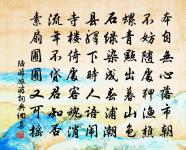 本自無心落市朝
不妨隨處狎漁樵
螺青點出暮山色
石綠染成春浦潮
縣驛下時人語鬧
寺樓倚處客魂消
流年不貸君知否
素扇團團又可搖